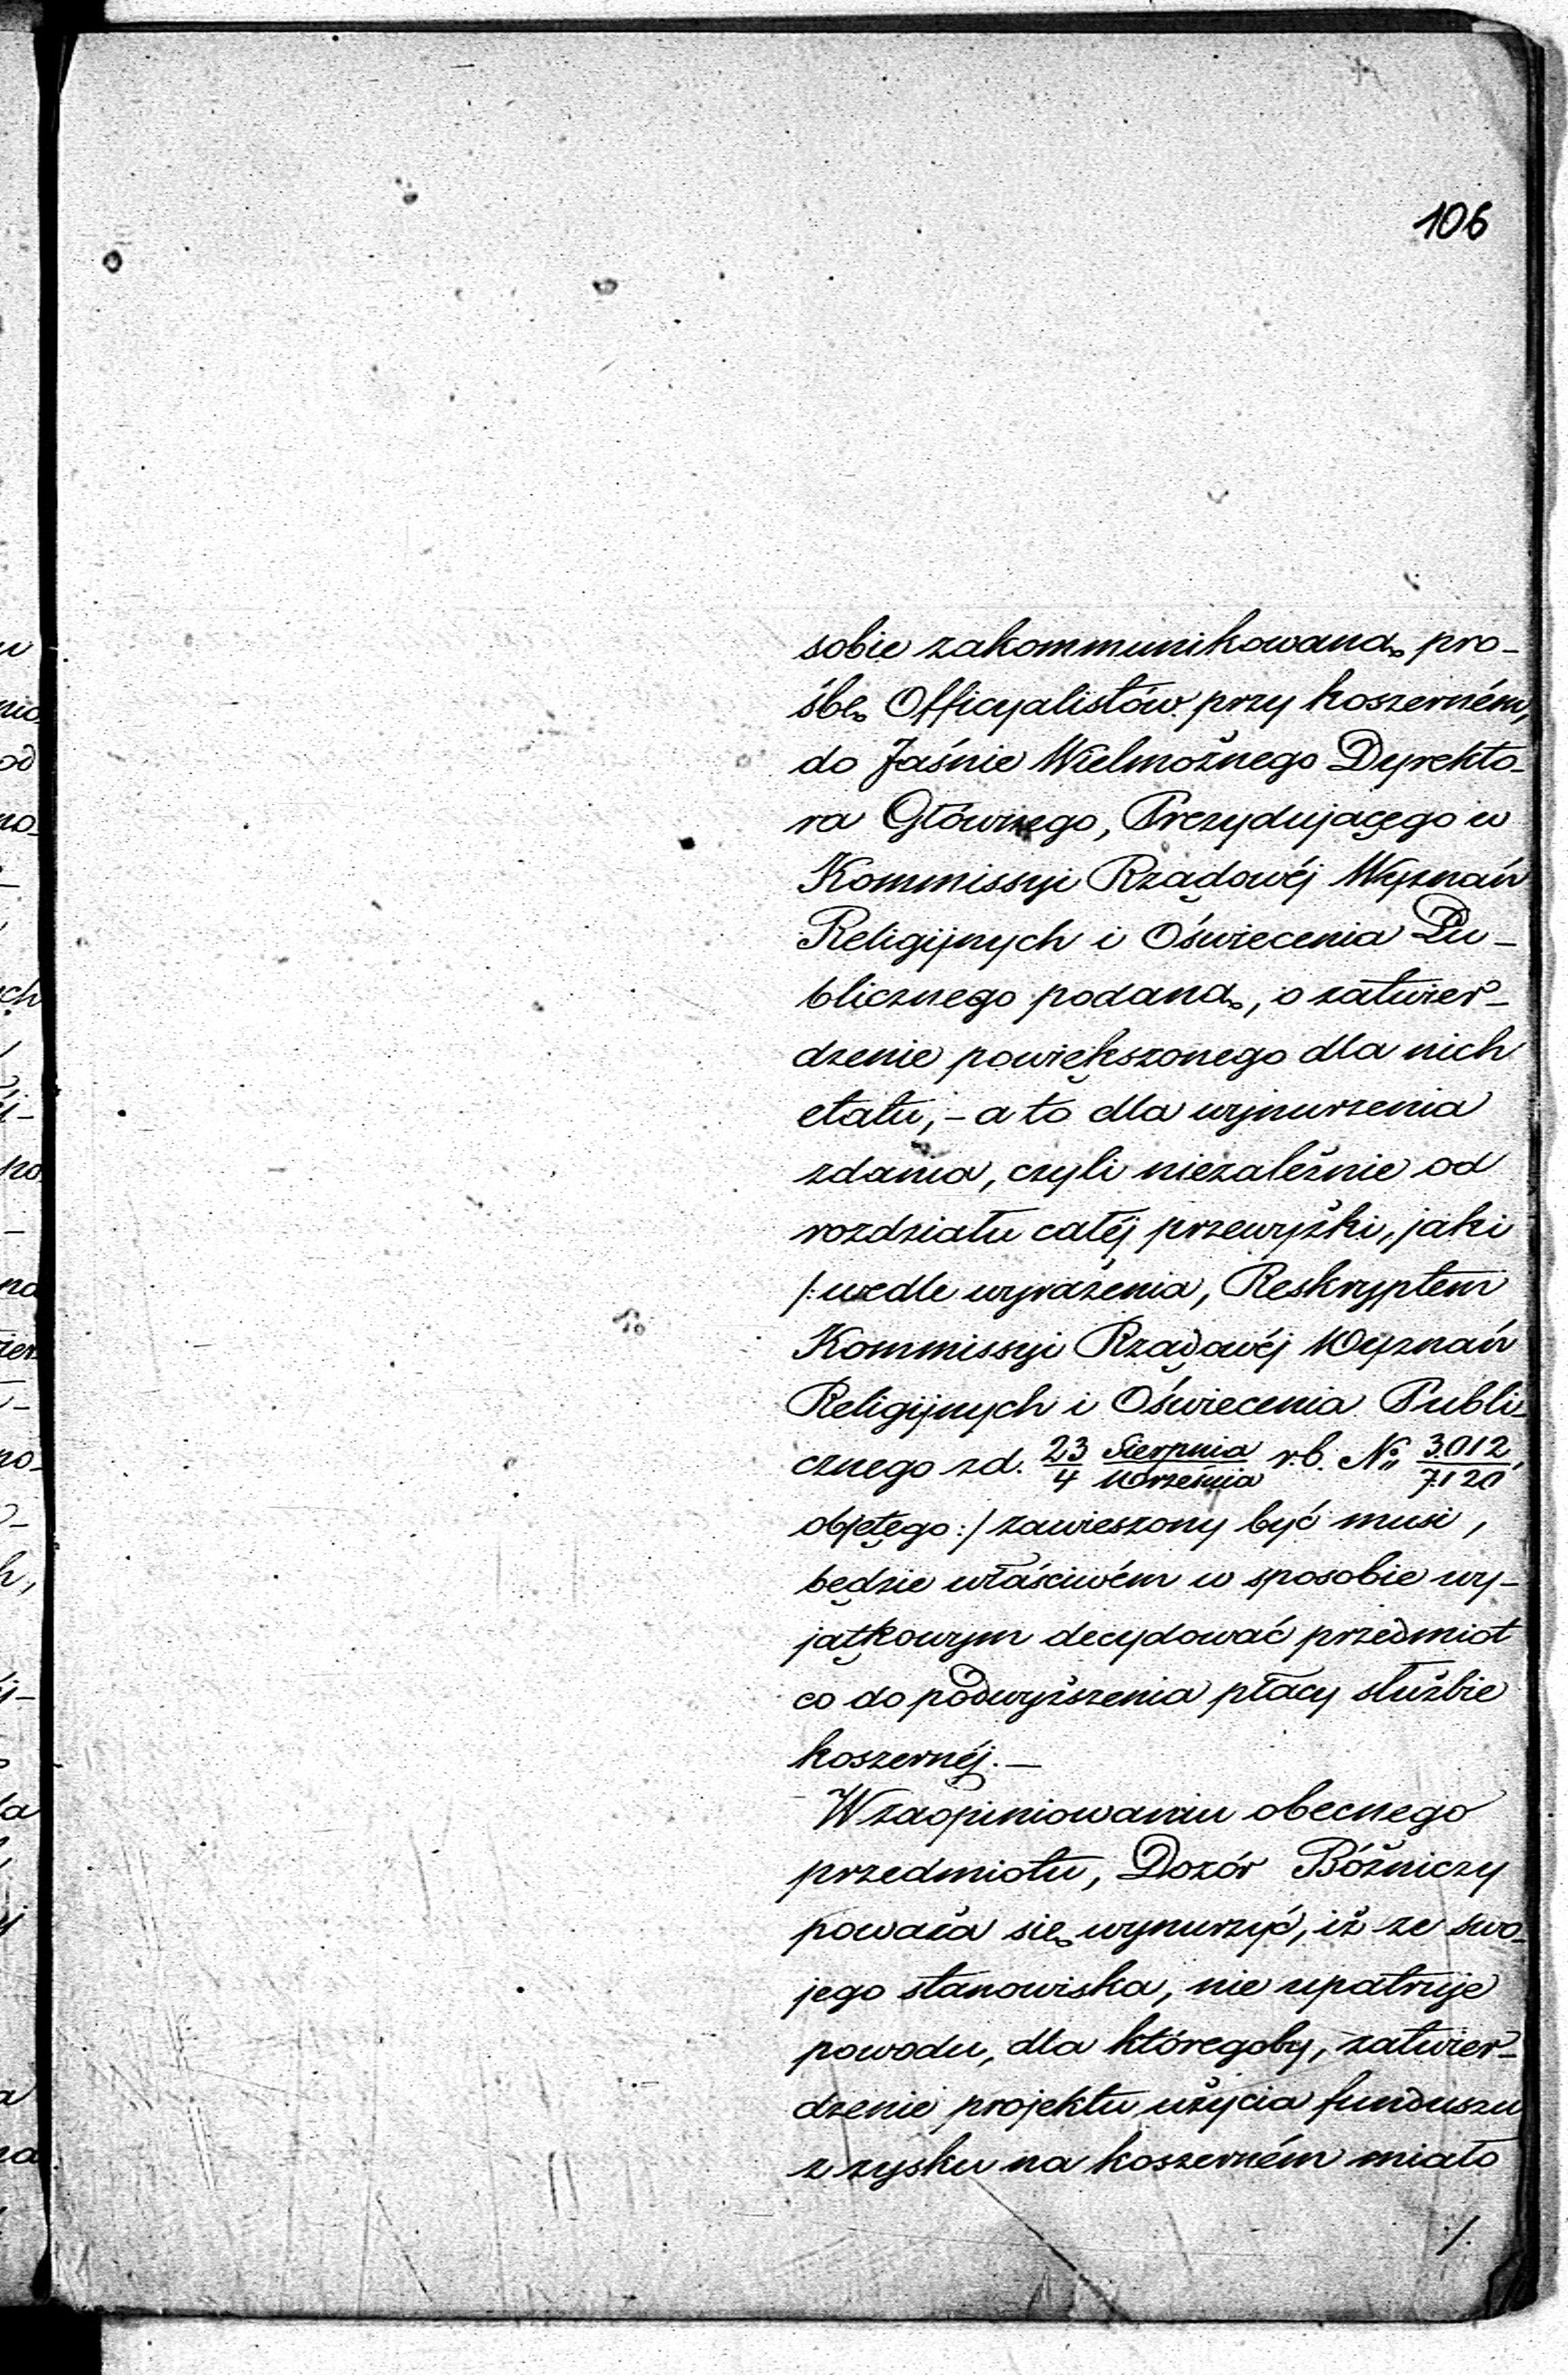 106
sobie zakommunikowaną pro-
śbę Officyalistów przy koszerném,
do Jaśnie Wielmożnego Dyrekto-
ra Głównego, Prezydującego w
Kommissyi Rządowéj Wyznań
Religijnych i Oświecenia Pu-
blicznego podaną, o zatwier-
dzenie powiększonego dla nich
etatu, - a to dla wynurzenia
zdania, czyli niezależnie od
rozdziału całéj przewyżki, jaki
/: wedle wyrażenia, Reskryptem
Kommissyi Rządowéj Wyznań
Religijnych i Oświecenia Publi-
cznego z d. 23/4 Sierpnia/Września r. b. № 3.012/7.120,
objętego :/ zawieszony być musi,
będzie właściwém w sposobie wy-
jątkowym decydować przedmiot
co do podwyższenia płacy służbie
koszernéj. -
W zaopiniowaniu obecnego
przedmiotu, Dozór Bóżniczy
poważa się wynurzyć, iż ze swo-
jego stanowiska, nie upatruje
powodu, dla któregoby, zatwier-
dzenie projektu użycia funduszu
z zysku na koszerném miało
/.